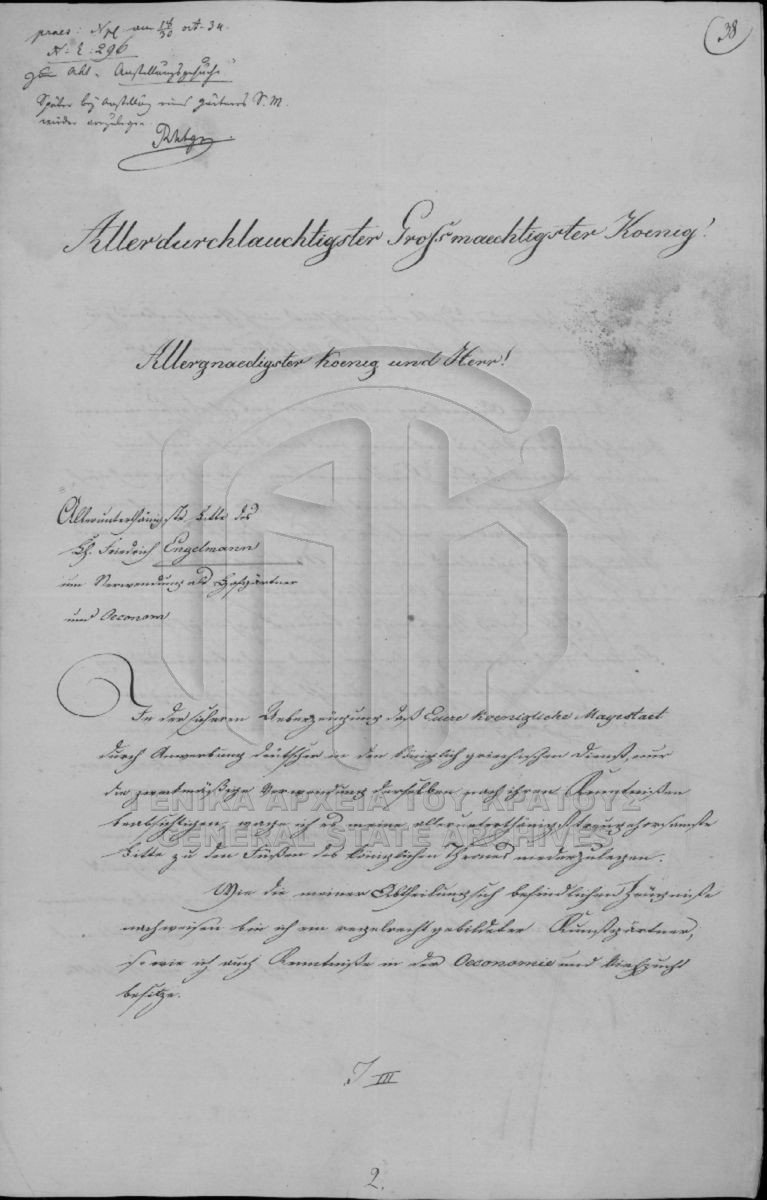 praes: Npl am 18/30 oct. 34.
N. E. 296
Akt "Anstellungsgesuche"
Später bey Anstellung eines Gärtners S. M.
wieder vorzulegen.
38
Allerdurchlauchtigster Grossmaechtigster Koenig!
Allergnaedigster Koenig und Herr!
Allerunterthänigste Bitte des
Ch. Friedrich Engelmann
um Verwendung als Hofgärtner
und Oeconom
In der sichern Ueberzeugung daß Euere Koenigliche Magestaet
durch Anwerbung deutscher in den königlich griechischen Dienst, nur
die zweckmäßige Verwendung derselben nach ihren Kenntnißen
beabsichtigen, wage ich es meine allerunterthänigst treugehorsamste
Bitte zu den Füßen des königlichen Thrones niederzulegen.
Wie die meiner Abtheilung sich befindlichen Zeugniße
nachweisen bin ich ein regelrecht gebildeter Kunstgärtner,
so wie ich auch Kenntniße in der Oeconomie und Viehzucht
besitze.
III
2.
ΓΕΝΙΚΑ ΑΡΧΕΙΑ ΤΟΥ ΚΡΑΤΟΥΣ
GENERAL STATE ARCHIVES